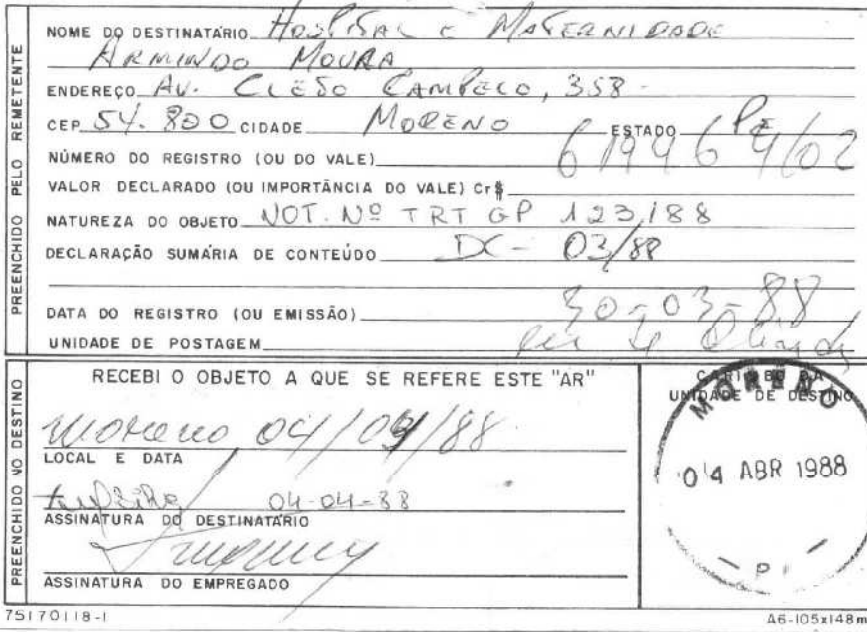 PREENCHIDO PELO REMETENTE
NOME DO DESTINATÁRIO HOSPITAL E MATERNIDADE
ARMINDO MOURA
ENDEREÇO AV. CLETO CAMPELO, 358 -
CEP 54.800 CIDADE MORENO ESTADO PE
NÚMERO DO REGISTRO (OU DO VALE) 619969/02
VALOR DECLARADO (OU IMPORTÂNCIA DO VALE) Cr$
NATUREZA DO OBJETO NOT. Nº TRT GP 123/88
DECLARAÇÃO SUMÁRIA DE CONTEÚDO DC - 03/88
DATA DO REGISTRO (OU EMISSÃO) 30-03-88
UNIDADE DE POSTAGEM
PREENCHIDO NO DESTINO
RECEBI O OBJETO A QUE SE REFERE ESTE "AR"
Moreno 04/04/88
LOCAL E DATA
04-04-88
ASSINATURA DO DESTINATÁRIO
ASSINATURA DO EMPREGADO
CARIMBO DA
UNIDADE DE DESTINO
MORENO
04 ABR 1988
75170118-1
A6-105x148m